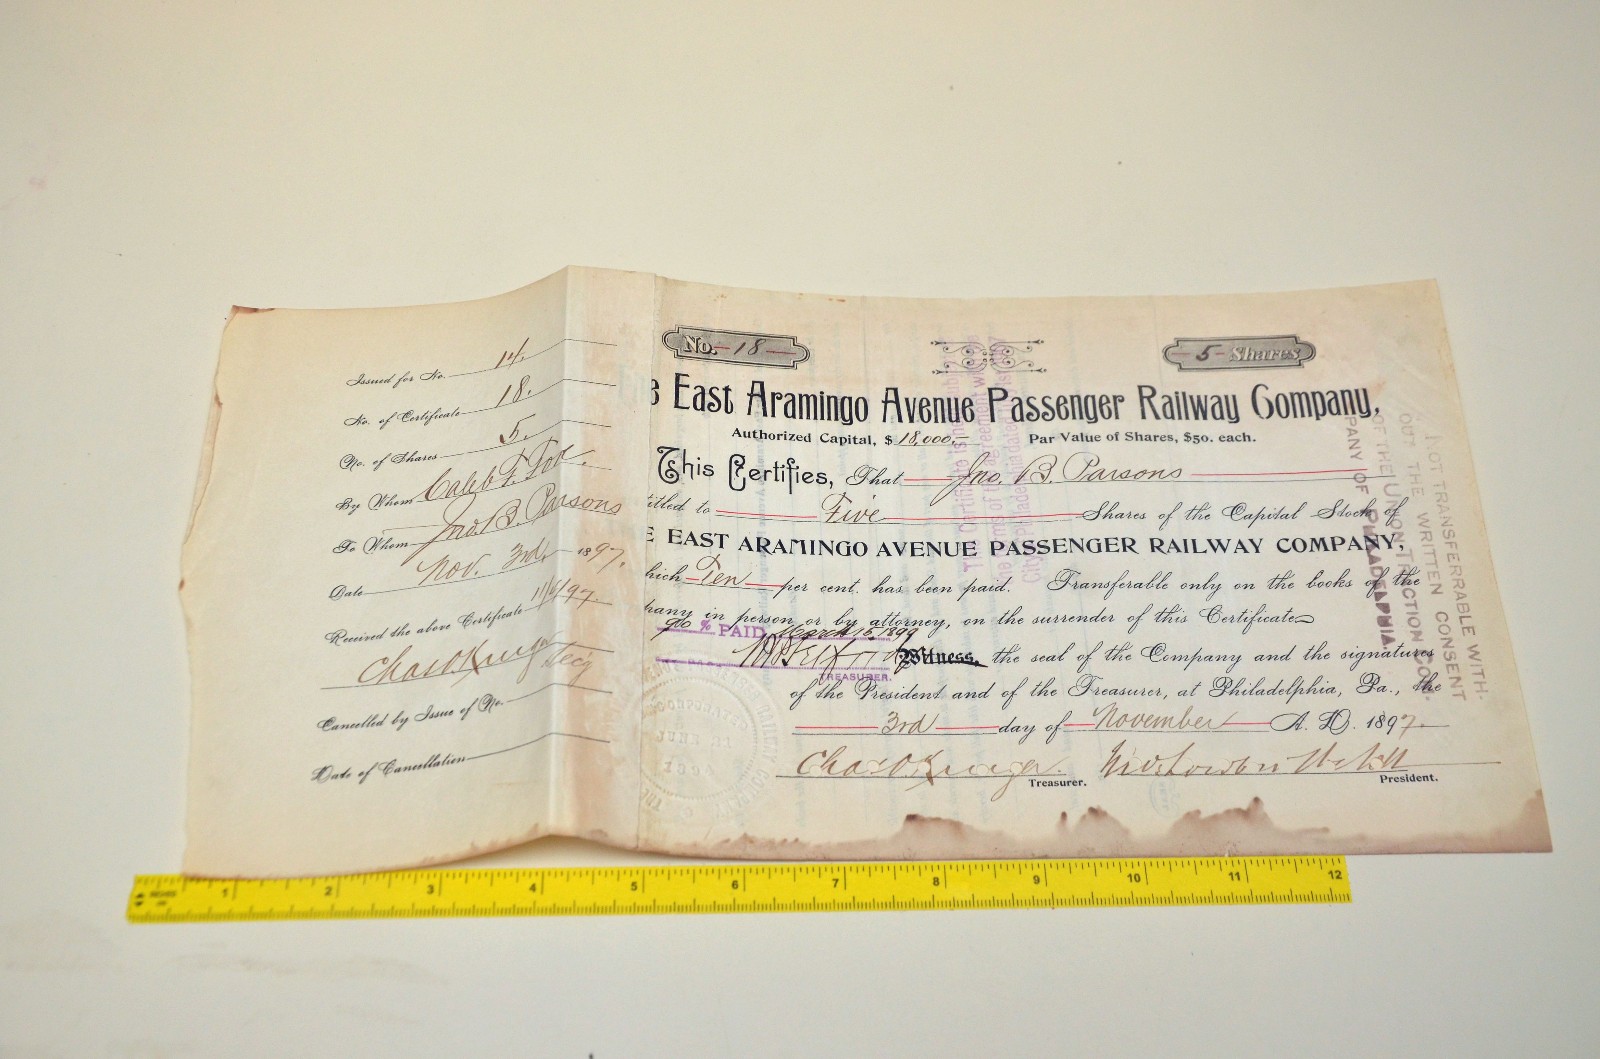 Issued for No. 14
No. of Certificate 18.
No. of Shares 5.
By Whom Caleb F. Fox.
To Whom Jno. B. Parsons
Date Nov. 3rd, 1897.
Received the above Certificate 11/6/97
Chas O Kruger Sec'y
Cancelled by Issue of No.
Date of Cancellation
No. 18
5 Shares
e East Aramingo Avenue Passenger Railway Company,
Authorized Capital, $18,000,- Par Value of Shares, $50. each.
This Certifies, That Jno. B. Parsons
titled to Five Shares of the Capital Stock of
E EAST ARAMINGO AVENUE PASSENGER RAILWAY COMPANY,
hich Ten per cent. has been paid. Transferable only on the books of the
pany in person or by attorney, on the surrender of this Certificate
90 % PAID March 15, 1899
TREASURER.
Witness, the seal of the Company and the signatures
of the President and of the Treasurer, at Philadelphia, Pa., the
3rd day of November A. D. 1897.
Chas O Kruger
Treasurer. President.
INCORPORATED
JUNE 21
NOT TRANSFERRABLE WITH-
OUT THE WRITTEN CONSENT
OF THE UNION TRACTION COM-
PANY OF PHILADELPHIA.
INCHES
1 2 3 4 5 6 7 8 9 10 11 12